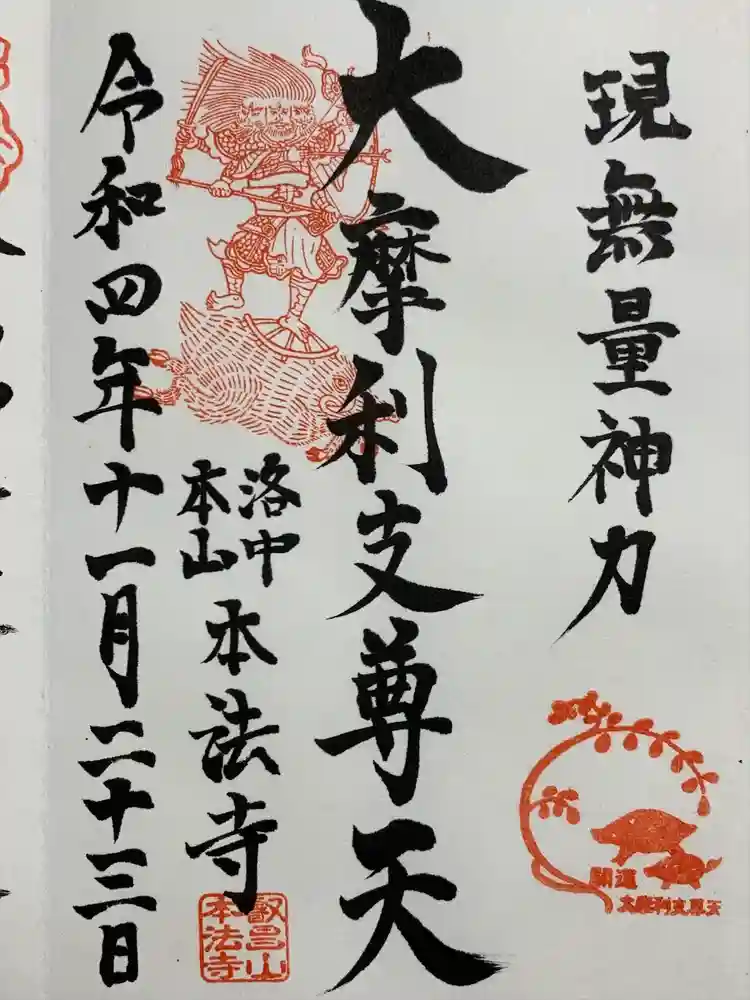 現無量神力
大摩利支尊天
洛中
本山
本法寺
令和四年十一月二十三日
開運
叡昌山
本法寺